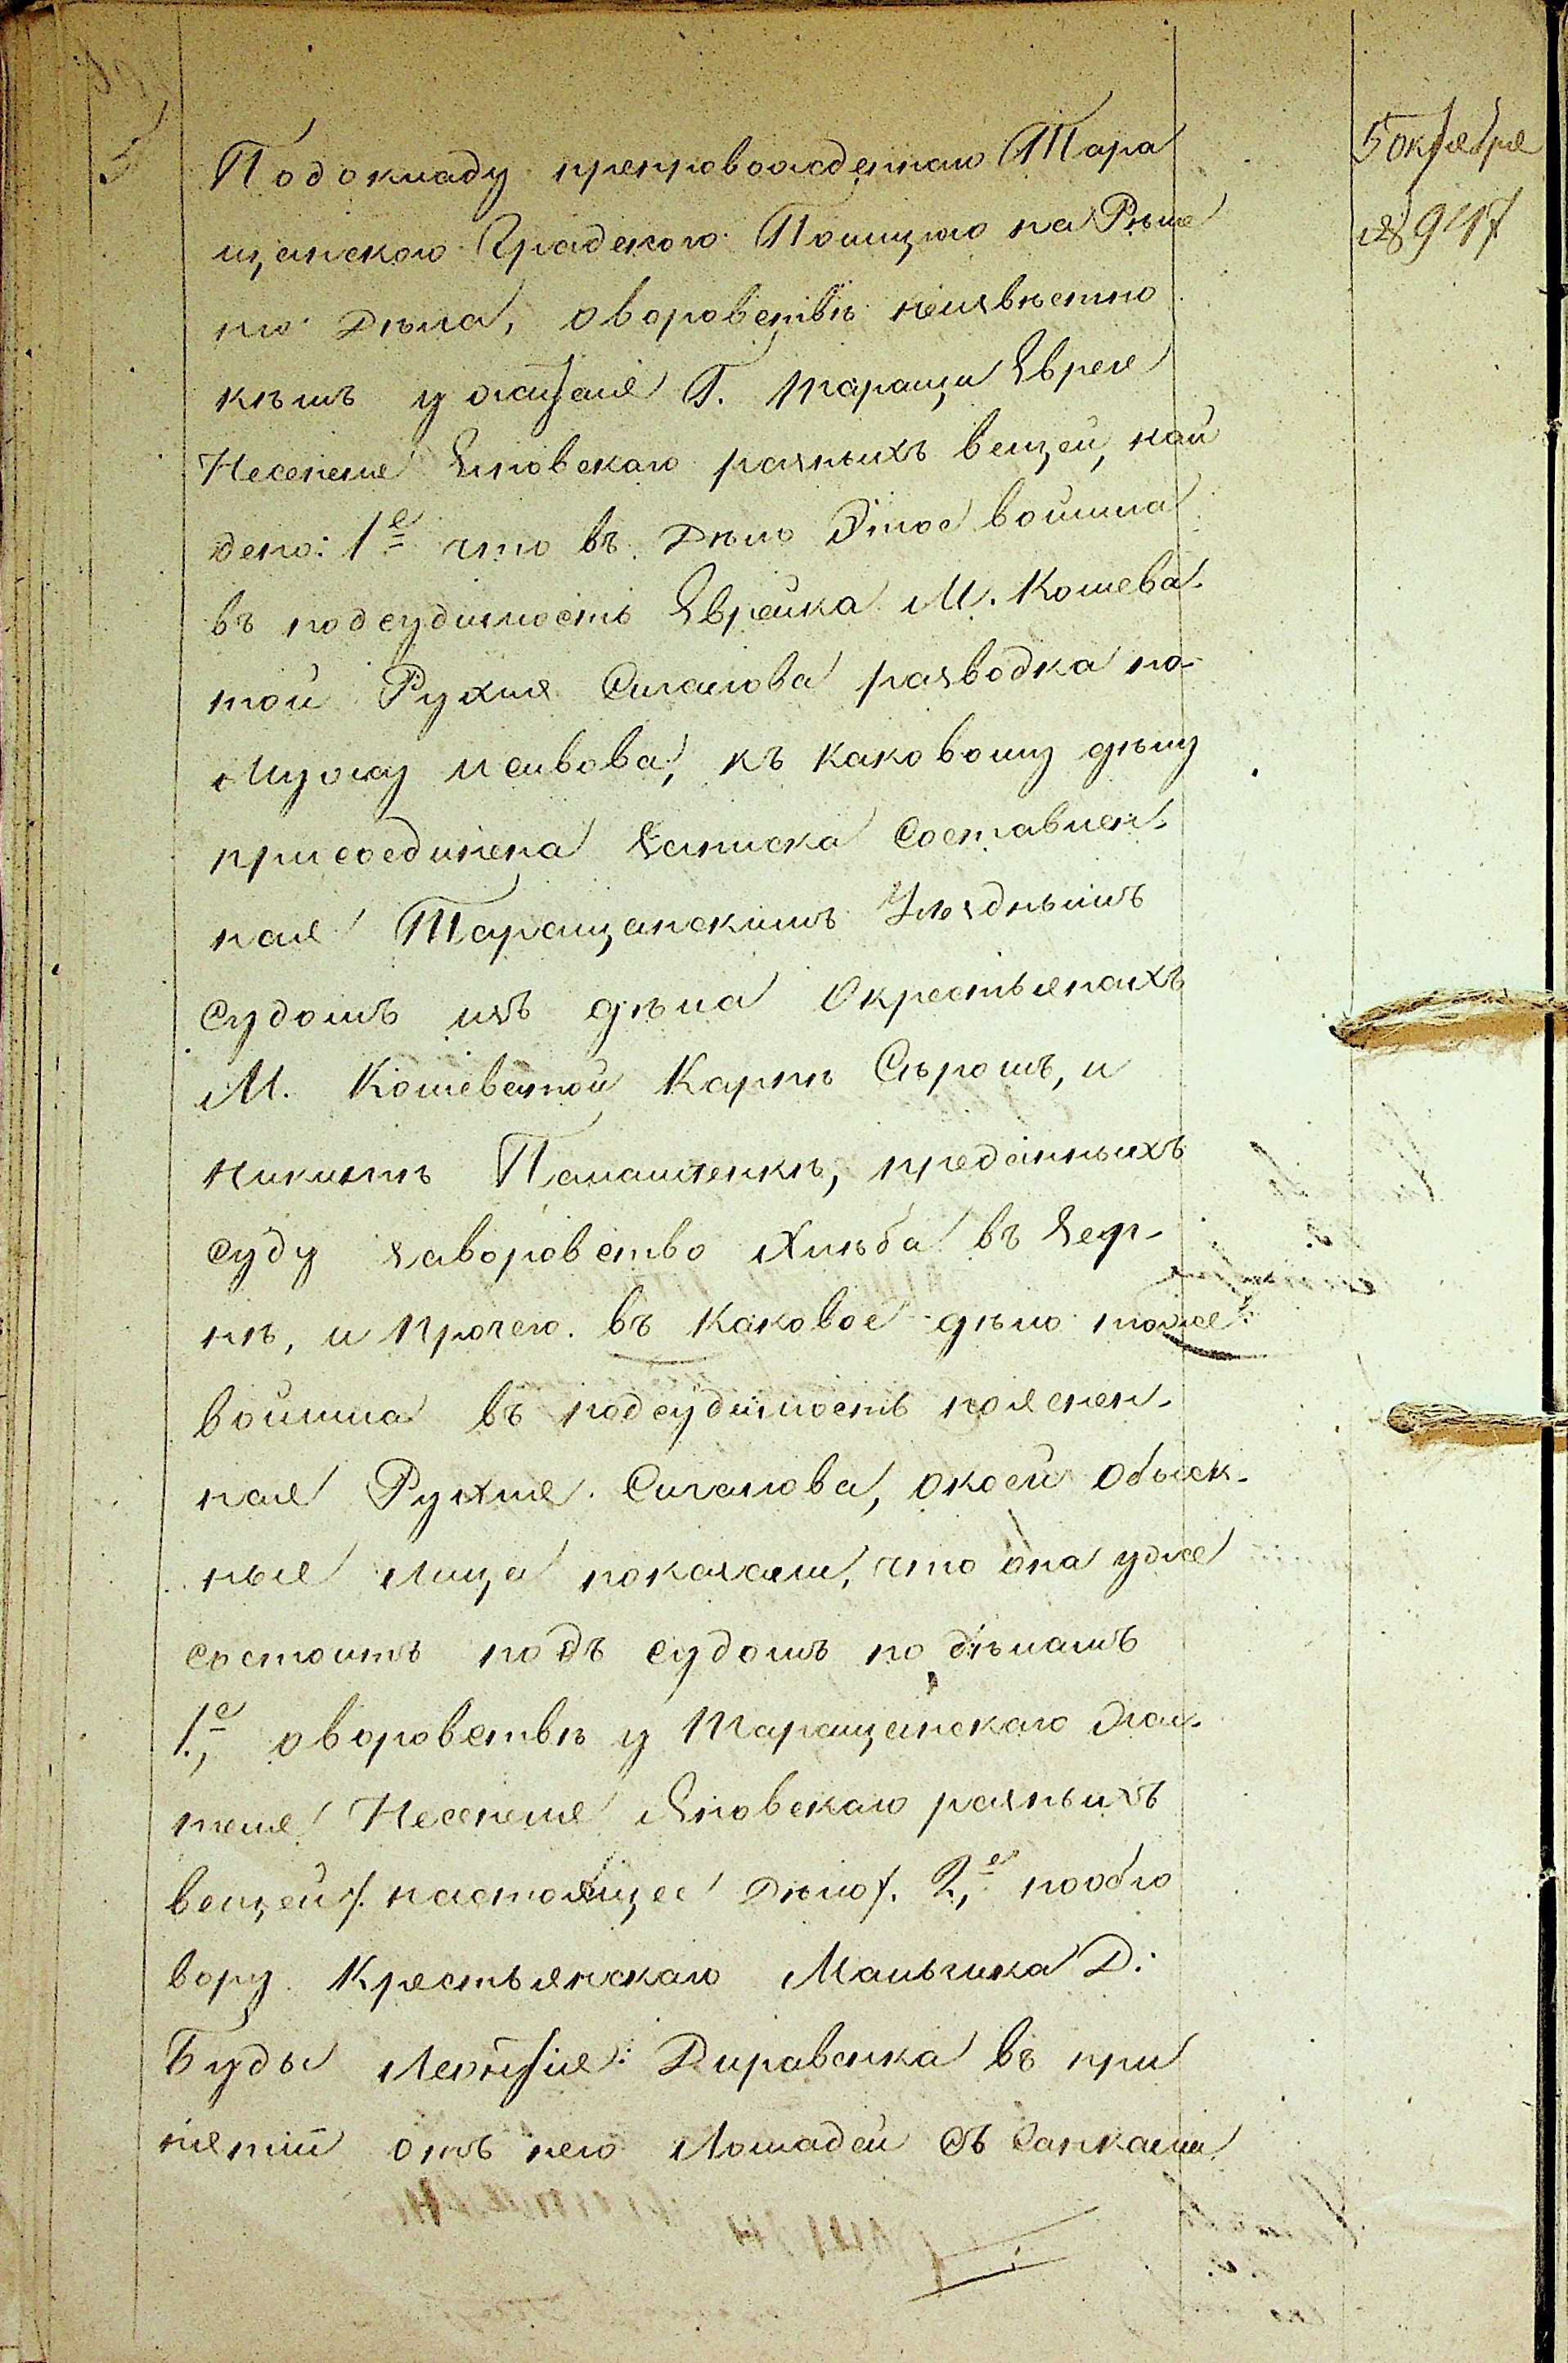 5 октября
№ 947
Подокладу препровожденаго Тара
щанского Градского Полицiею на Рѣше
нiе Дѣла, оворовствѣ неизвѣстно
кѣмъ у жителя Г. Таращи Еврея
Несенеля Яновскаго разныхъ вещей, най
дено: 1е что въ Дѣло Этое вошла
въ подсудимость Еврейка М. Кошева-
той Рухля Сигалова разводка по-
Мужу Исакова, къ каковому дѣлу
присоединена записка Составлен-
ная Таращанскимъ Уѣзднымъ
Судомъ изъ дѣла Окрестьянахъ
М. Кошеватой Карпѣ Сѣромъ, и
Никитѣ Паламаренкѣ, преданныхъ
суду заворовство Хлѣба въ Зер-
нѣ, и прочего. въ каковое дѣло тоже
вошла въ подсудимость поясnen-
ная Рухля Сигалова, окоей Обыск-
ные Лица показали, что она уже
состоитъ подъ судомъ по дѣламъ
1.е, оворовствѣ у Таращанскаго жи-
теля Несенеля Яновскаго разныхъ
вещей /. настоящее Дѣло /. 2.е, пообго
вору Крестьянскаго Мальчика Д:
Буды Леонтiя Диравенка въ при
нятiи отъ него Лошадей Съ Санками